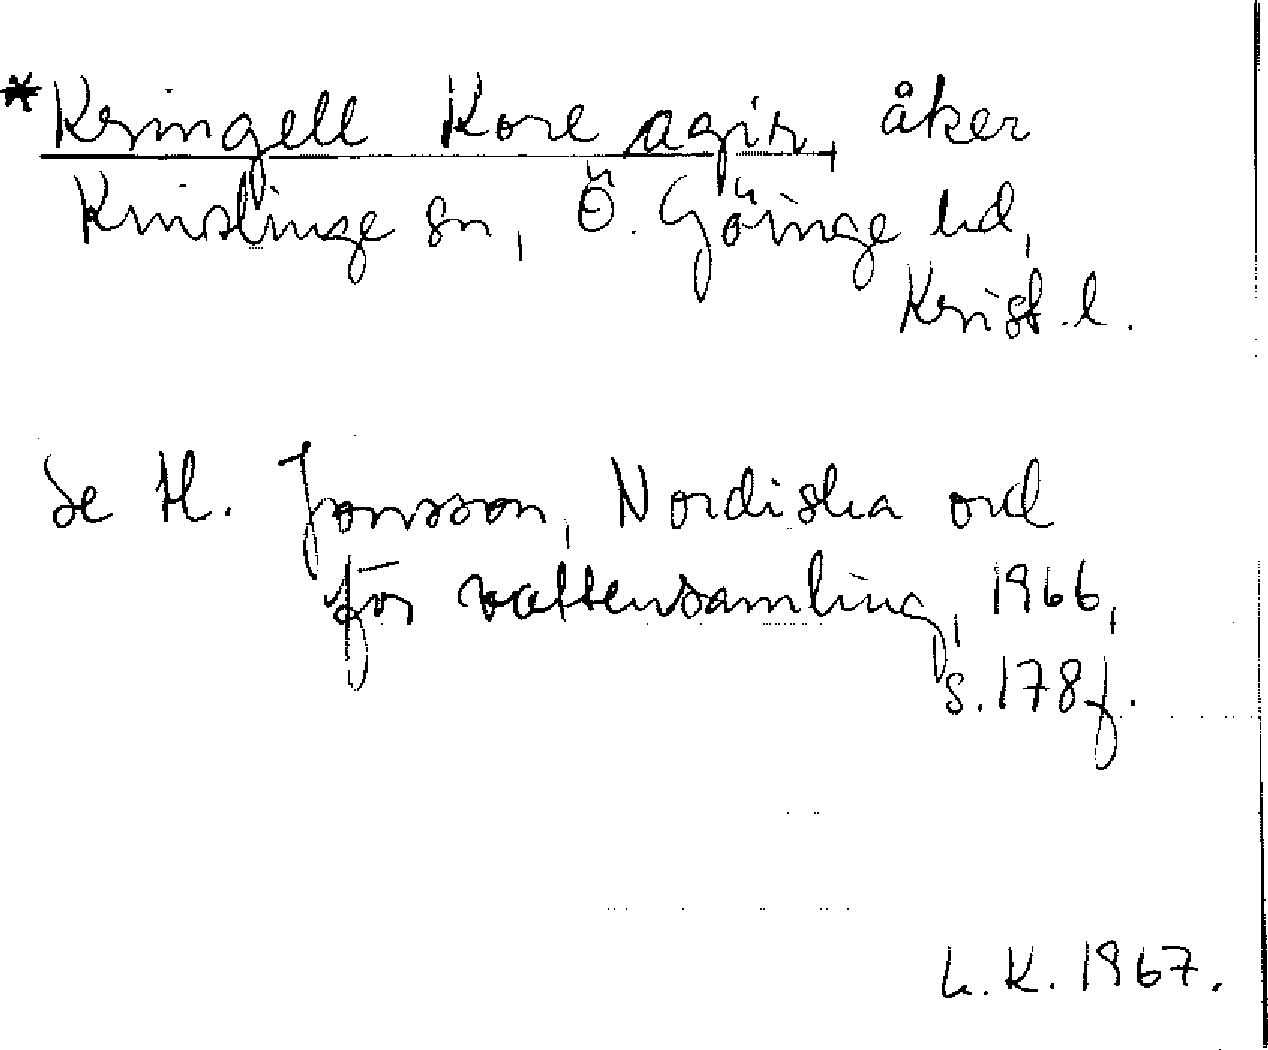 *Kringell Kore agir, åker
Knislinge sn, Ö. Göinge hd,
Krist.l.
Se H. Jonsson, Nordiska ord
för vattensamling, 1966,
s. 178f.
L.K. 1967.